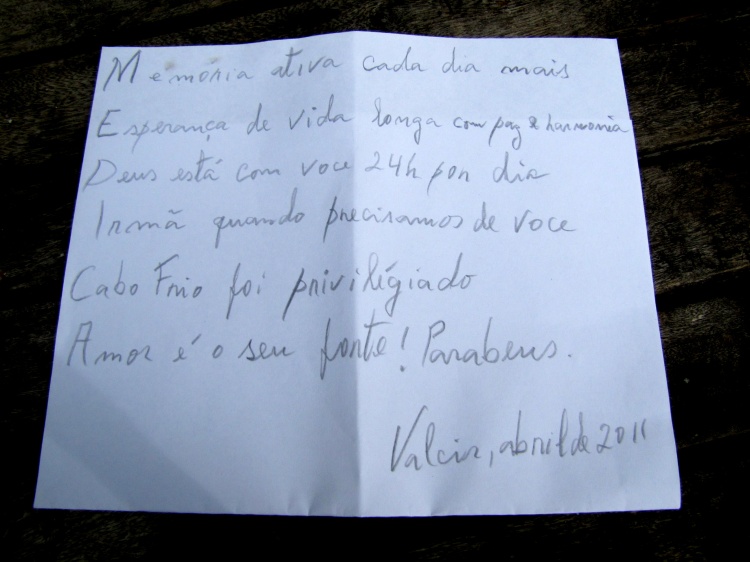 Memória ativa cada dia mais
Esperança de vida longa com paz e harmonia
Deus está com voce 24h por dia
Irmã quando precisamos de voce
Cabo Frio foi privilégiado
Amor é o seu forte! Parabens.
Valcir, abril de 2011